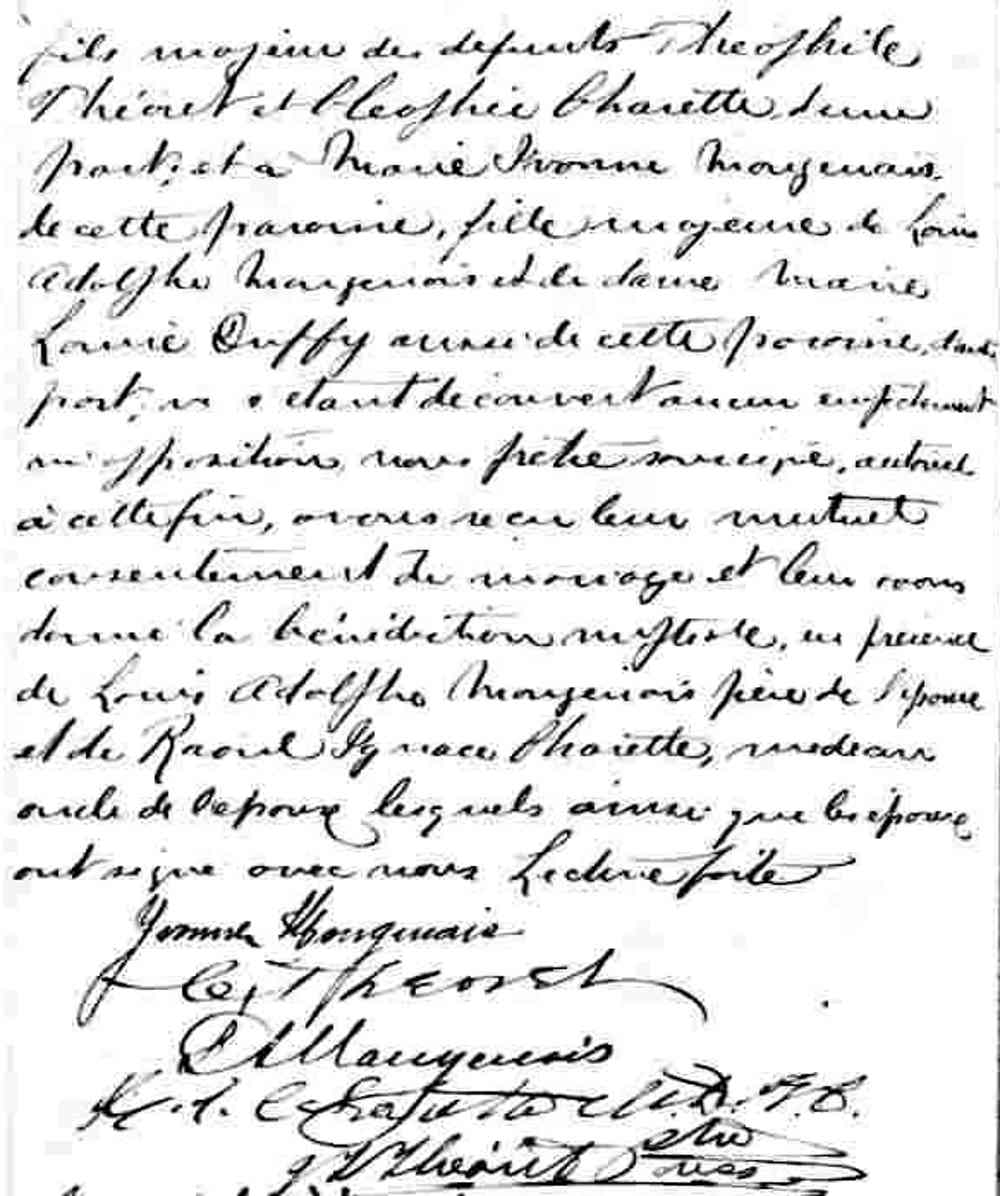 fils majeur des defunts Theophile
Théoret et Cleophie Charette d'une
part; et à Marie Yvonne Mongenais
de cette paroisse, fille majeure de Louis
Adolphe Mongenais et de dame Marie
Louise Duffy aussi de cette paroisse, d'autre
part; ne s'etant decouvert aucun empêchement
ni opposition, nous prêtre soussigné, autorisé
à cette fin, avons reçu leur mutuel
consentement de mariage et leur avons
donné la bénédiction nuptiale, en présence
de Louis Adolphe Mongenais père de l'épouse
et de Raoul Ignace Charette, medecin
oncle de l'epoux lesquels ainsi que les époux
ont signé avec nous Lecture faite
Yvonne Mongenais
Theoret
L A Mongenais
Charette M.D.
Théoret Ptre